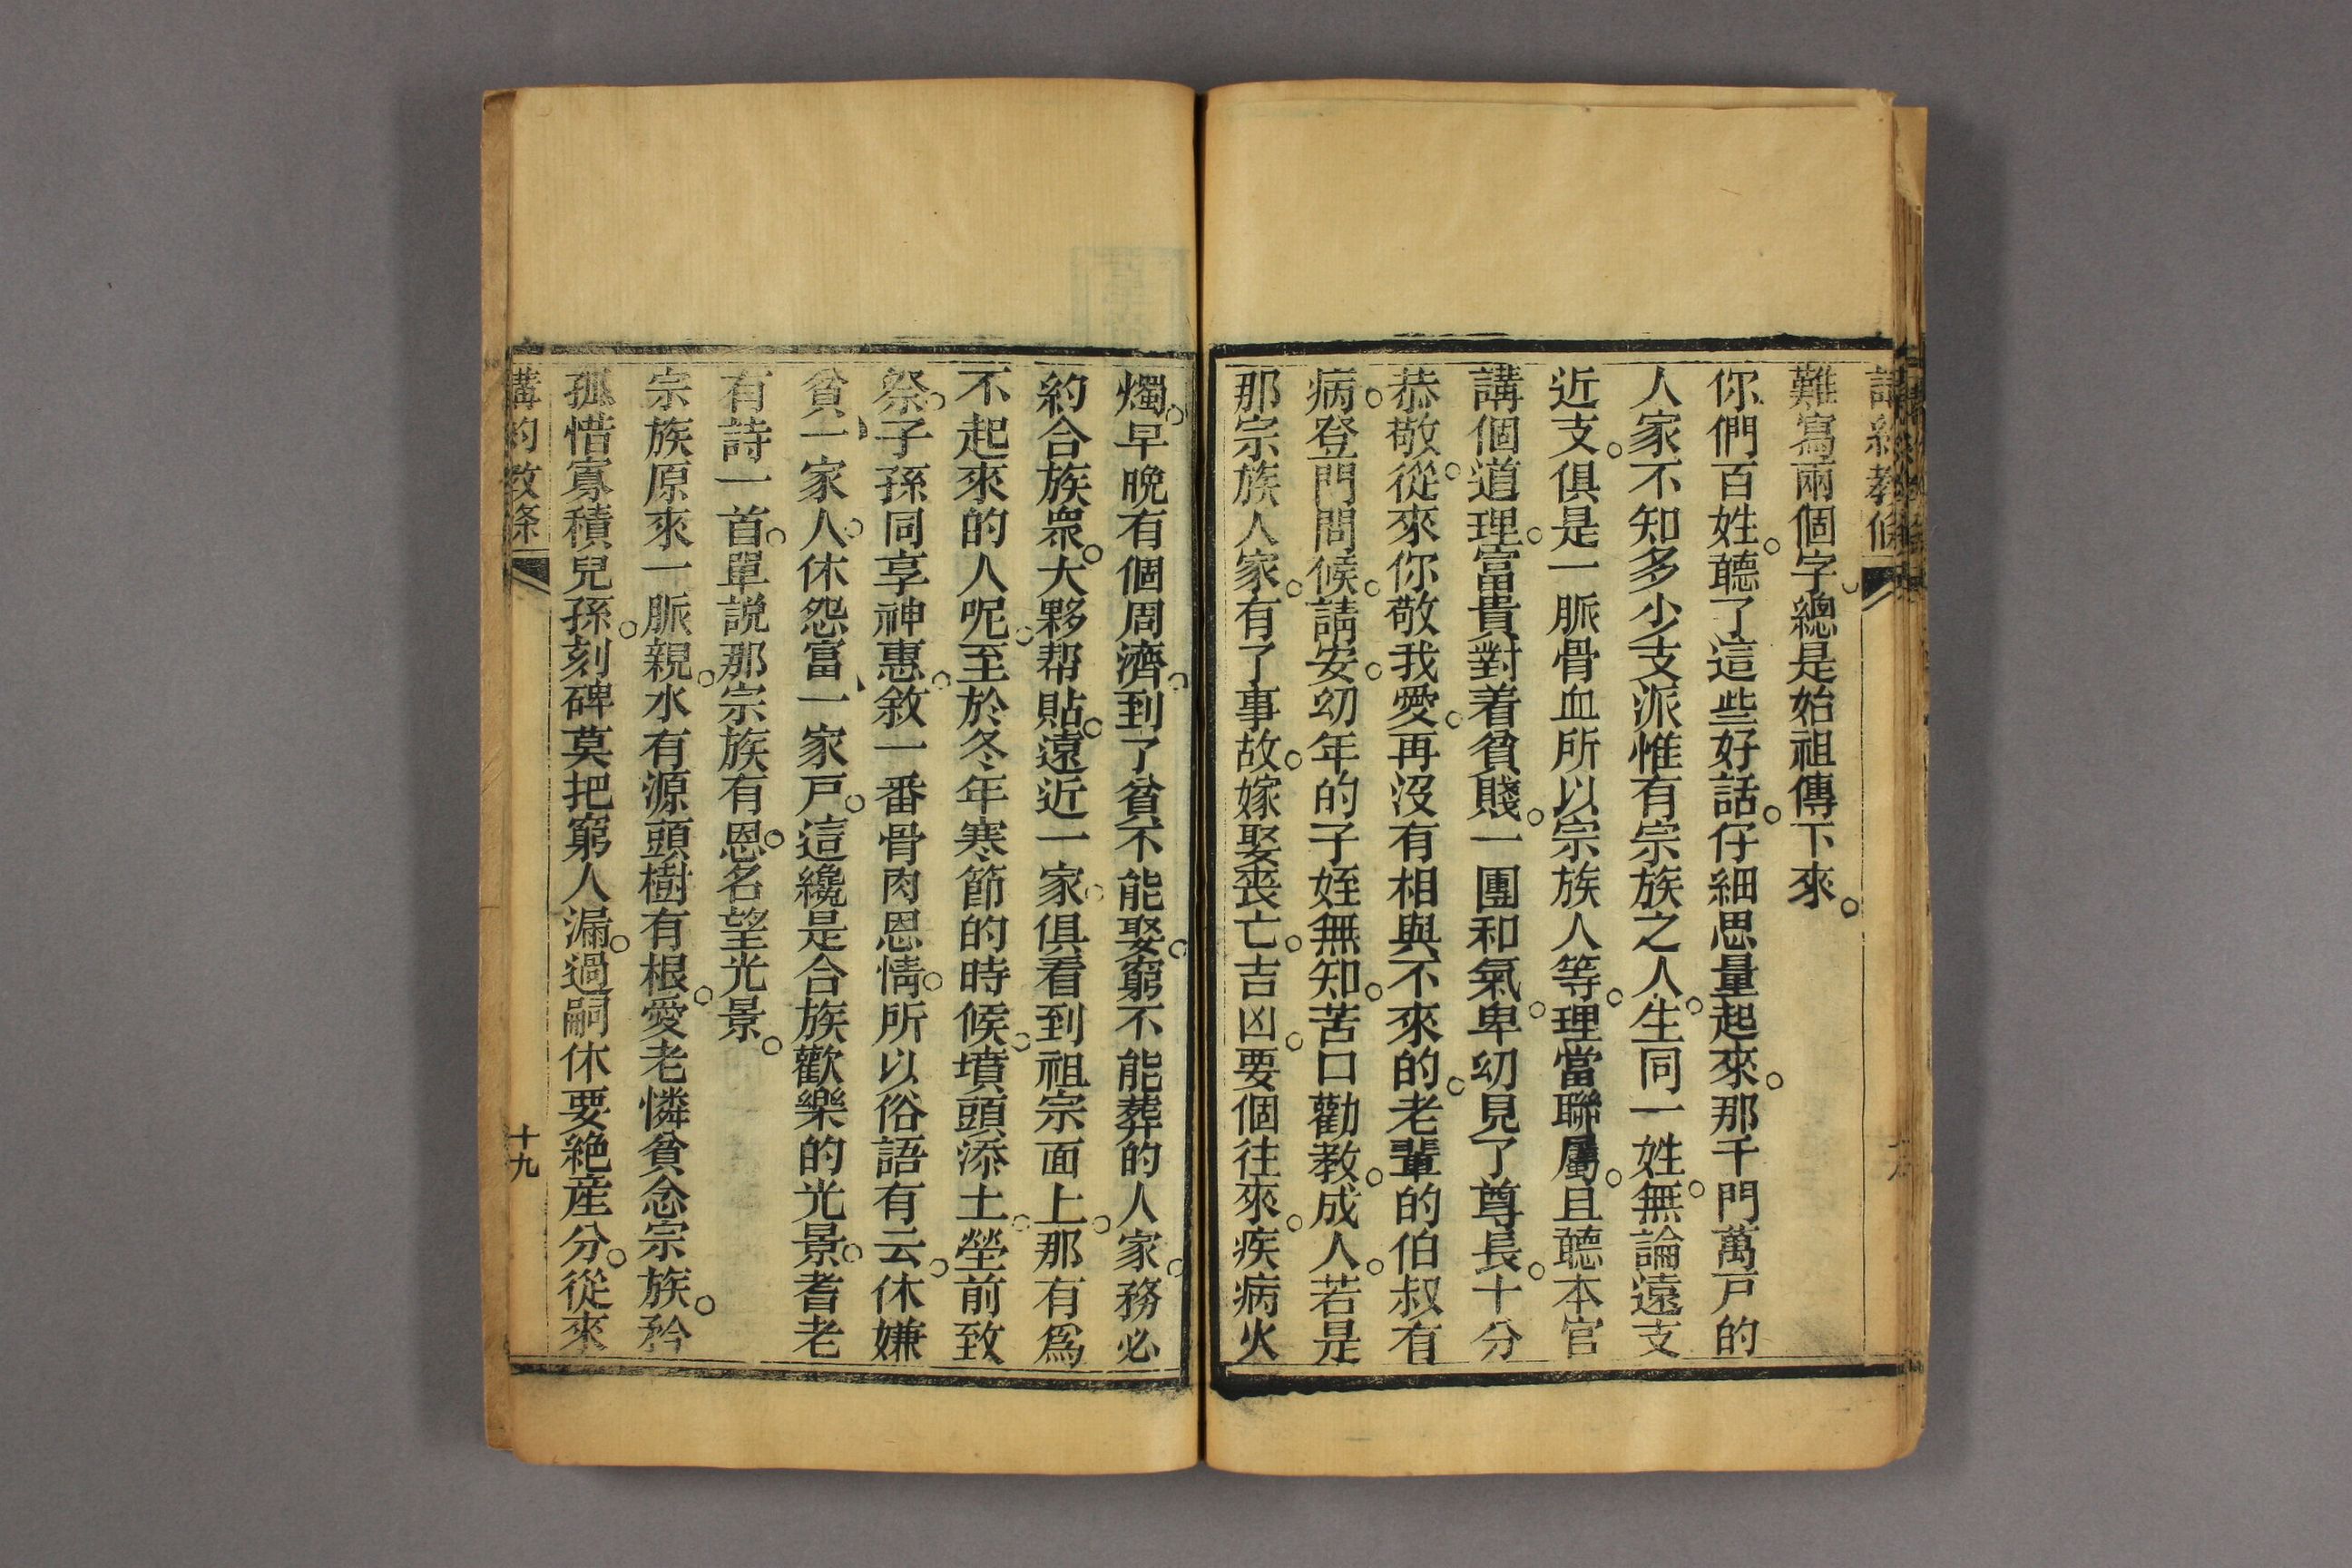 難寫兩個字總是始祖傳下來。
你們百姓。聽了這些好話。仔細思量起來。那千門萬戶的
人家不知多少支派惟有宗族之人。生同一姓。無論遠支
近支。俱是一脈骨血所以宗族人等。理當聯屬。且聽本官
講個道理。富貴對着貧賤。一團和氣。卑幼見了尊長。十分
恭敬。從來你敬我愛。再沒有相與不來的。老輩的伯叔有
病。登門問候。請安。幼年的子姪無知。苦口勸教。成人。若是
那宗族人家。有了事故。嫁娶喪亡。吉凶。要個往來。疾病火
燭。早晚有個周濟。到了貧不能娶。窮不能葬的人家。務必
約合族衆。大夥帮貼。遠近一家。俱看到祖宗面上。那有爲
不起來的人呢。至於冬年寒節的時候。墳頭添土。塋前致
祭。子孫同享神惠。敘一番骨肉恩情。所以俗語有云。休嫌
貧、一家人。休怨富、一家戶。這纔是合族歡樂的光景。耆老
有詩一首。單說那宗族有恩。名望光景。
宗族原來一脈親。水有源頭樹有根。愛老憐貧念宗族。矜
孤惜寡積兒孫。刻碑莫把窮人漏。過嗣休要絶産分。從來
講約教條
十九